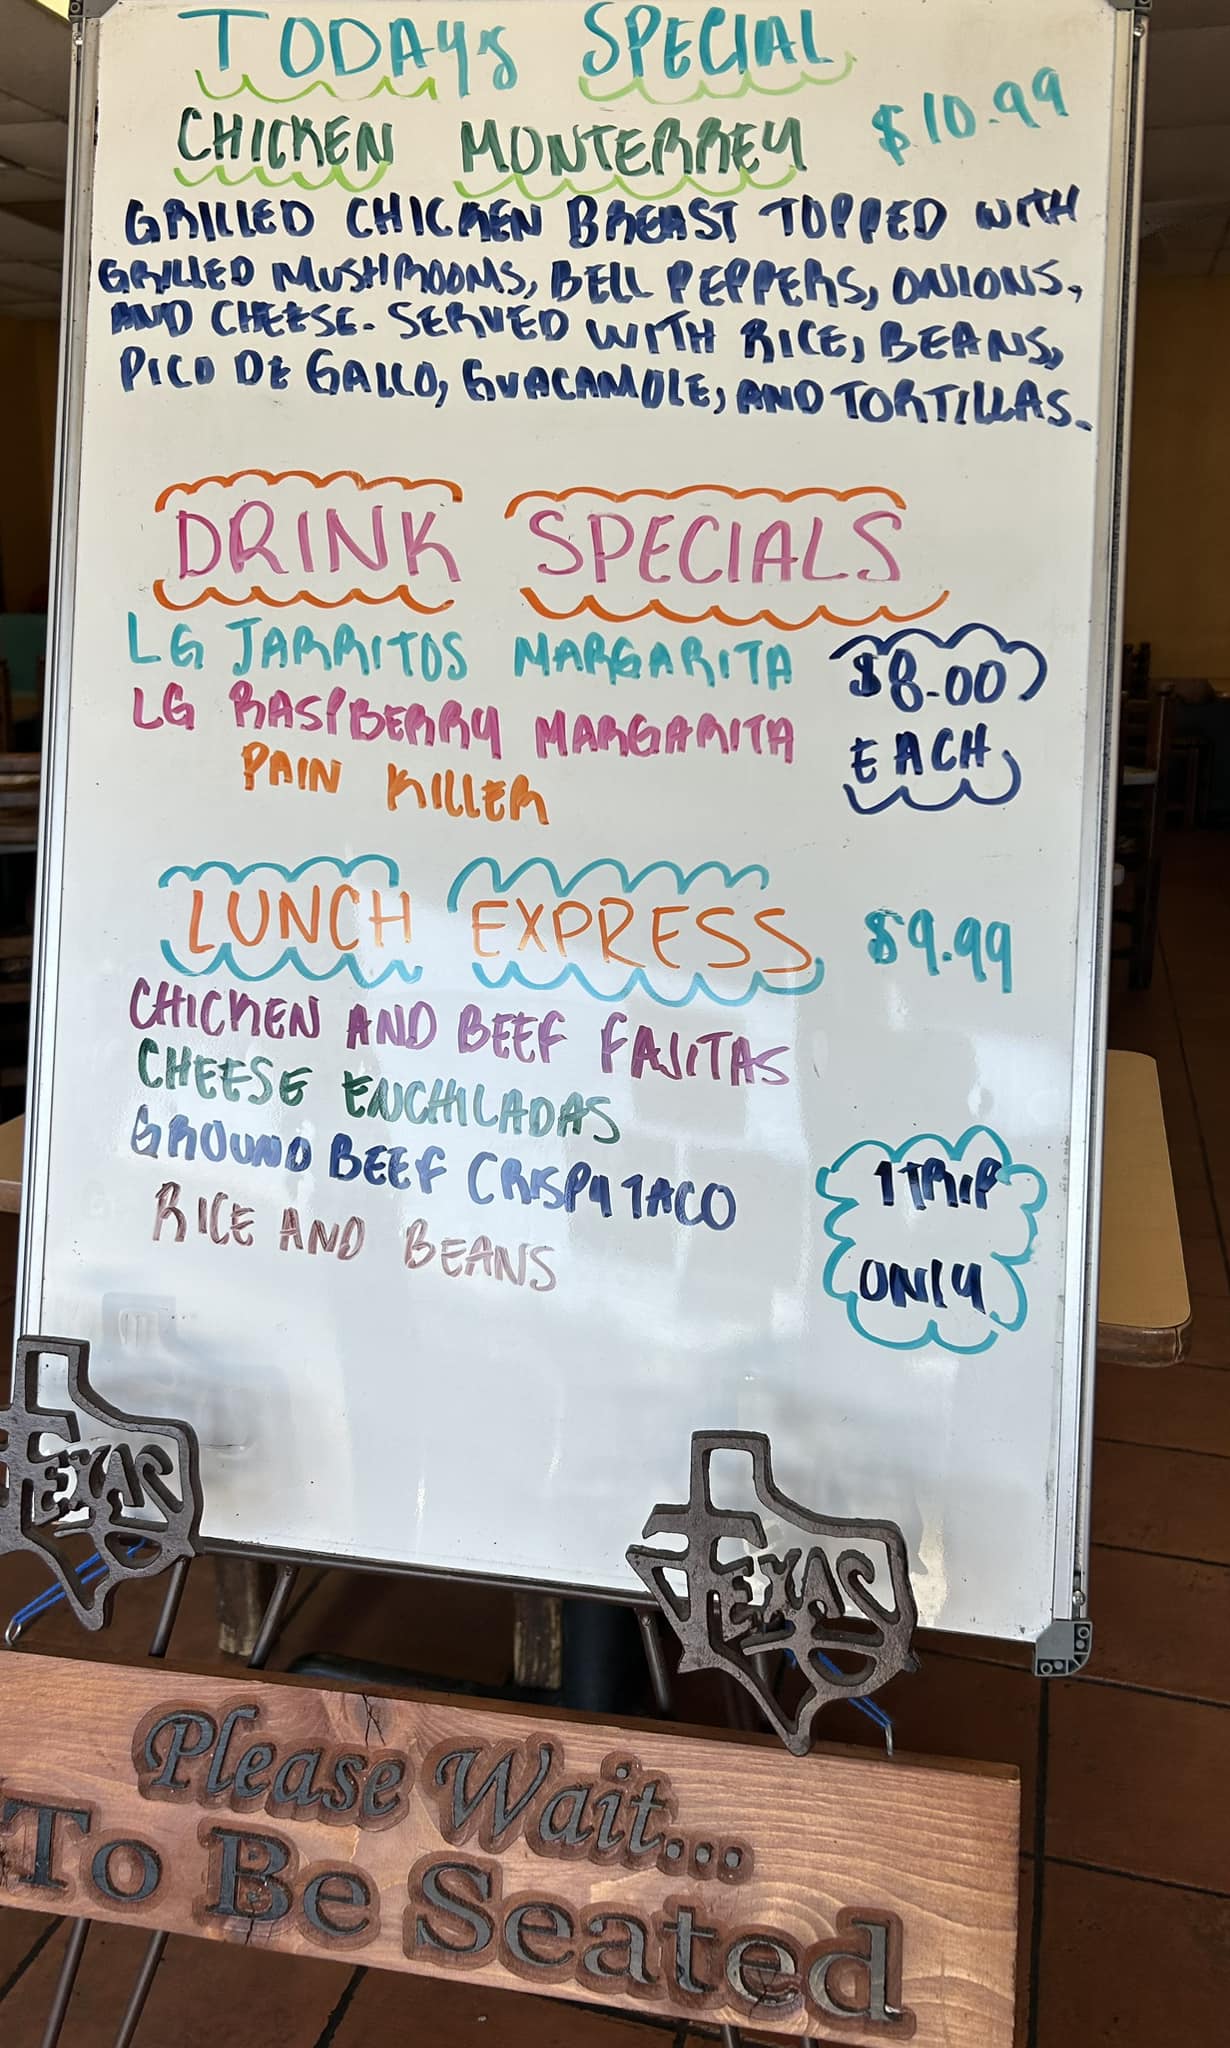 TODAYS SPECIAL
CHICKEN MONTERREY $10.99
GRILLED CHICKEN BREAST TOPPED WITH
GRILLED MUSHROOMS, BELL PEPPERS, ONIONS,
AND CHEESE. SERVED WITH RICE, BEANS,
PICO DE GALLO, GUACAMOLE, AND TORTILLAS.
DRINK SPECIALS
LG JARRITOS MARGARITA
LG RASPBERRY MARGARITA
PAIN KILLER
$8.00
EACH
LUNCH EXPRESS $9.99
CHICKEN AND BEEF FAJITAS
CHEESE ENCHILADAS
GROUND BEEF CRISPY TACO
RICE AND BEANS
1 TRIP
ONLY
TEXAS
TEXAS
Please Wait...
To Be Seated